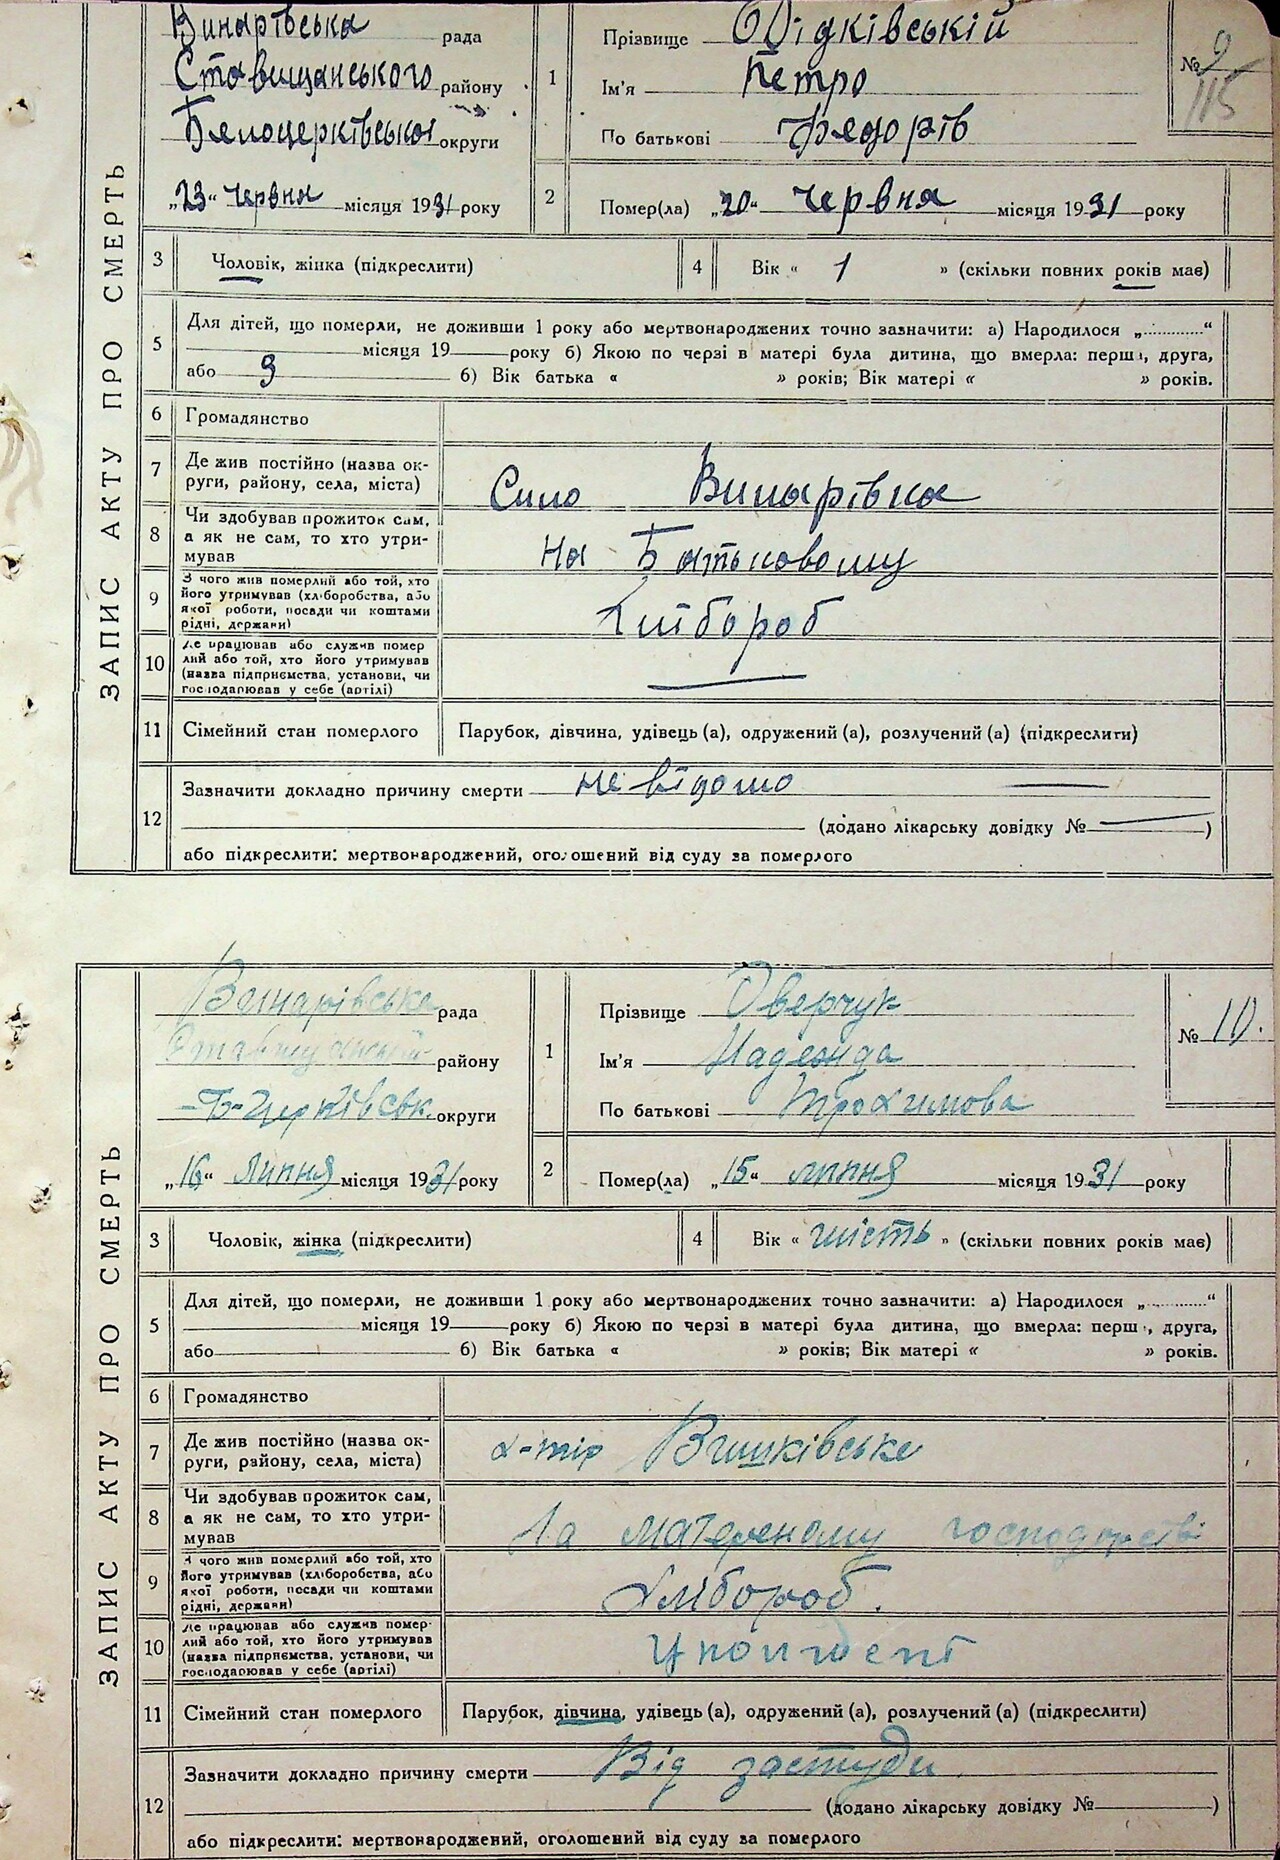 ЗАПИС АКТУ ПРО СМЕРТЬ
Винарівська рада
Ставищанського району
Білоцерківської округи
„23“ червня місяця 1931 року
1
Прізвище Відківській
Ім'я Петро
По батькові Федорів
№ 9
115
2
Помер(ла) „20“ червня місяця 1931 року
3 Чоловік, жінка (підкреслити)
4 Вік « 1 » (скільки повних років має)
5 Для дітей, що померли, не доживши 1 року або мертвонароджених точно зазначити: а) Народилося „............“
місяця 19 року б) Якою по черзі в матері була дитина, що вмерла: перша, друга,
або 3 б) Вік батька « » років; Вік матері « » років.
6 Громадянство
7 Де жив постійно (назва ок-
руги, району, села, міста)
Село Винарівка
8 Чи здобував прожиток сам,
а як не сам, то хто утри-
мував
на Батьковому
9 З чого жив померлий або той, хто
його утримував (хліборобства, або
якої роботи, посади чи коштами
рідні, держави)
Хлібороб
10 Де працював або служив помер
лий або той, хто його утримував
(назва підприємства, установи, чи
господарював у себе (артілі)
11 Сімейний стан померлого
Парубок, дівчина, удівець (а), одружений (а), розлучений (а) (підкреслити)
12 Зазначити докладно причину смерти не відомо
(додано лікарську довідку № )
або підкреслити: мертвонароджений, оголошений від суду за померлого
ЗАПИС АКТУ ПРО СМЕРТЬ
Винарівське рада
району
Б-Церківськ. округи
„16“ липня місяця 1931 року
1
Прізвище Оверчук
Ім'я Надежда
По батькові Трохимова
№ 10.
2
Помер(ла) „15“ липня місяця 1931 року
3 Чоловік, жінка (підкреслити)
4 Вік « шість » (скільки повних років має)
5 Для дітей, що померли, не доживши 1 року або мертвонароджених точно зазначити: а) Народилося „............“
місяця 19 року б) Якою по черзі в матері була дитина, що вмерла: перша, друга,
або б) Вік батька « » років; Вік матері « » років.
6 Громадянство
7 Де жив постійно (назва ок-
руги, району, села, міста)
х-тір
8 Чи здобував прожиток сам,
а як не сам, то хто утри-
мував
На материному господарстві
9 З чого жив померлий або той, хто
його утримував (хліборобства, або
якої роботи, посади чи коштами
рідні, держави)
Хлібороб.
10 Де працював або служив помер-
лий або той, хто його утримував
(назва підприємства, установи, чи
господарював у себе (артілі)
11 Сімейний стан померлого
Парубок, дівчина, удівець (а), одружений (а), розлучений (а) (підкреслити)
12 Зазначити докладно причину смерти Від застуди
(додано лікарську довідку № )
або підкреслити: мертвонароджений, оголошений від суду за померлого